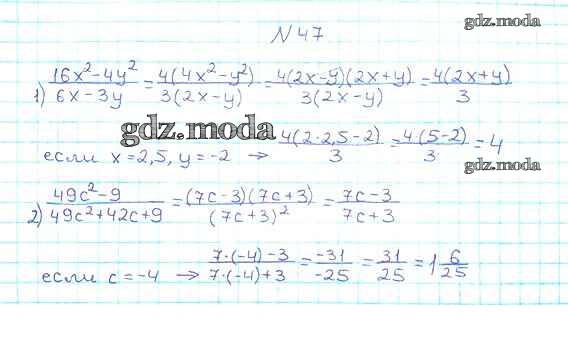 N 47
gdz.moda
1) (16x²-4y²)/(6x-3y) = 4(4x²-y²)/3(2x-y) = 4(2x-y)(2x+y)/3(2x-y) = 4(2x+y)/3
gdz.moda
если x=2,5, y=-2 → 4(2·2,5-2)/3 = 4·(5-2)/3 = 4
gdz.moda
2) (49c²-9)/(49c²+42c+9) = (7c-3)(7c+3)/(7c+3)² = (7c-3)/(7c+3)
если c=-4 → (7·(-4)-3)/(7·(-4)+3) = -31/-25 = 31/25 = 1 6/25